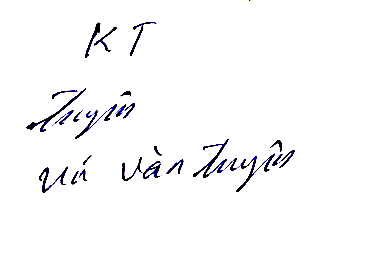 KT
Tuyên
Vũ Văn Tuyên